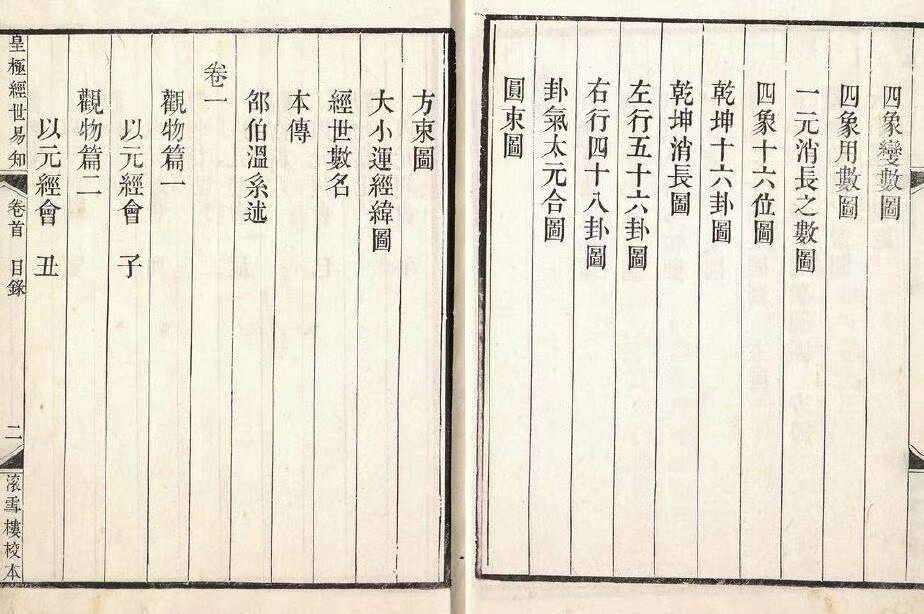 四象變數圖
四象用數圖
一元消長之數圖
四象十六位圖
乾坤十六卦圖
乾坤消長圖
左行五十六卦圖
右行四十八卦圖
卦氣太元合圖
圓束圖
方束圖
大小運經緯圖
經世數名
本傳
邵伯溫系述
卷一
觀物篇一
以元經會　子
觀物篇二
以元經會　丑
皇極經世易知　卷首　目錄　二　滚雪樓校本